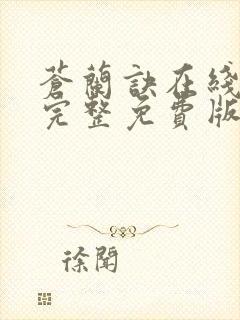 蒼蘭訣在綫
完整免費版
徐聞